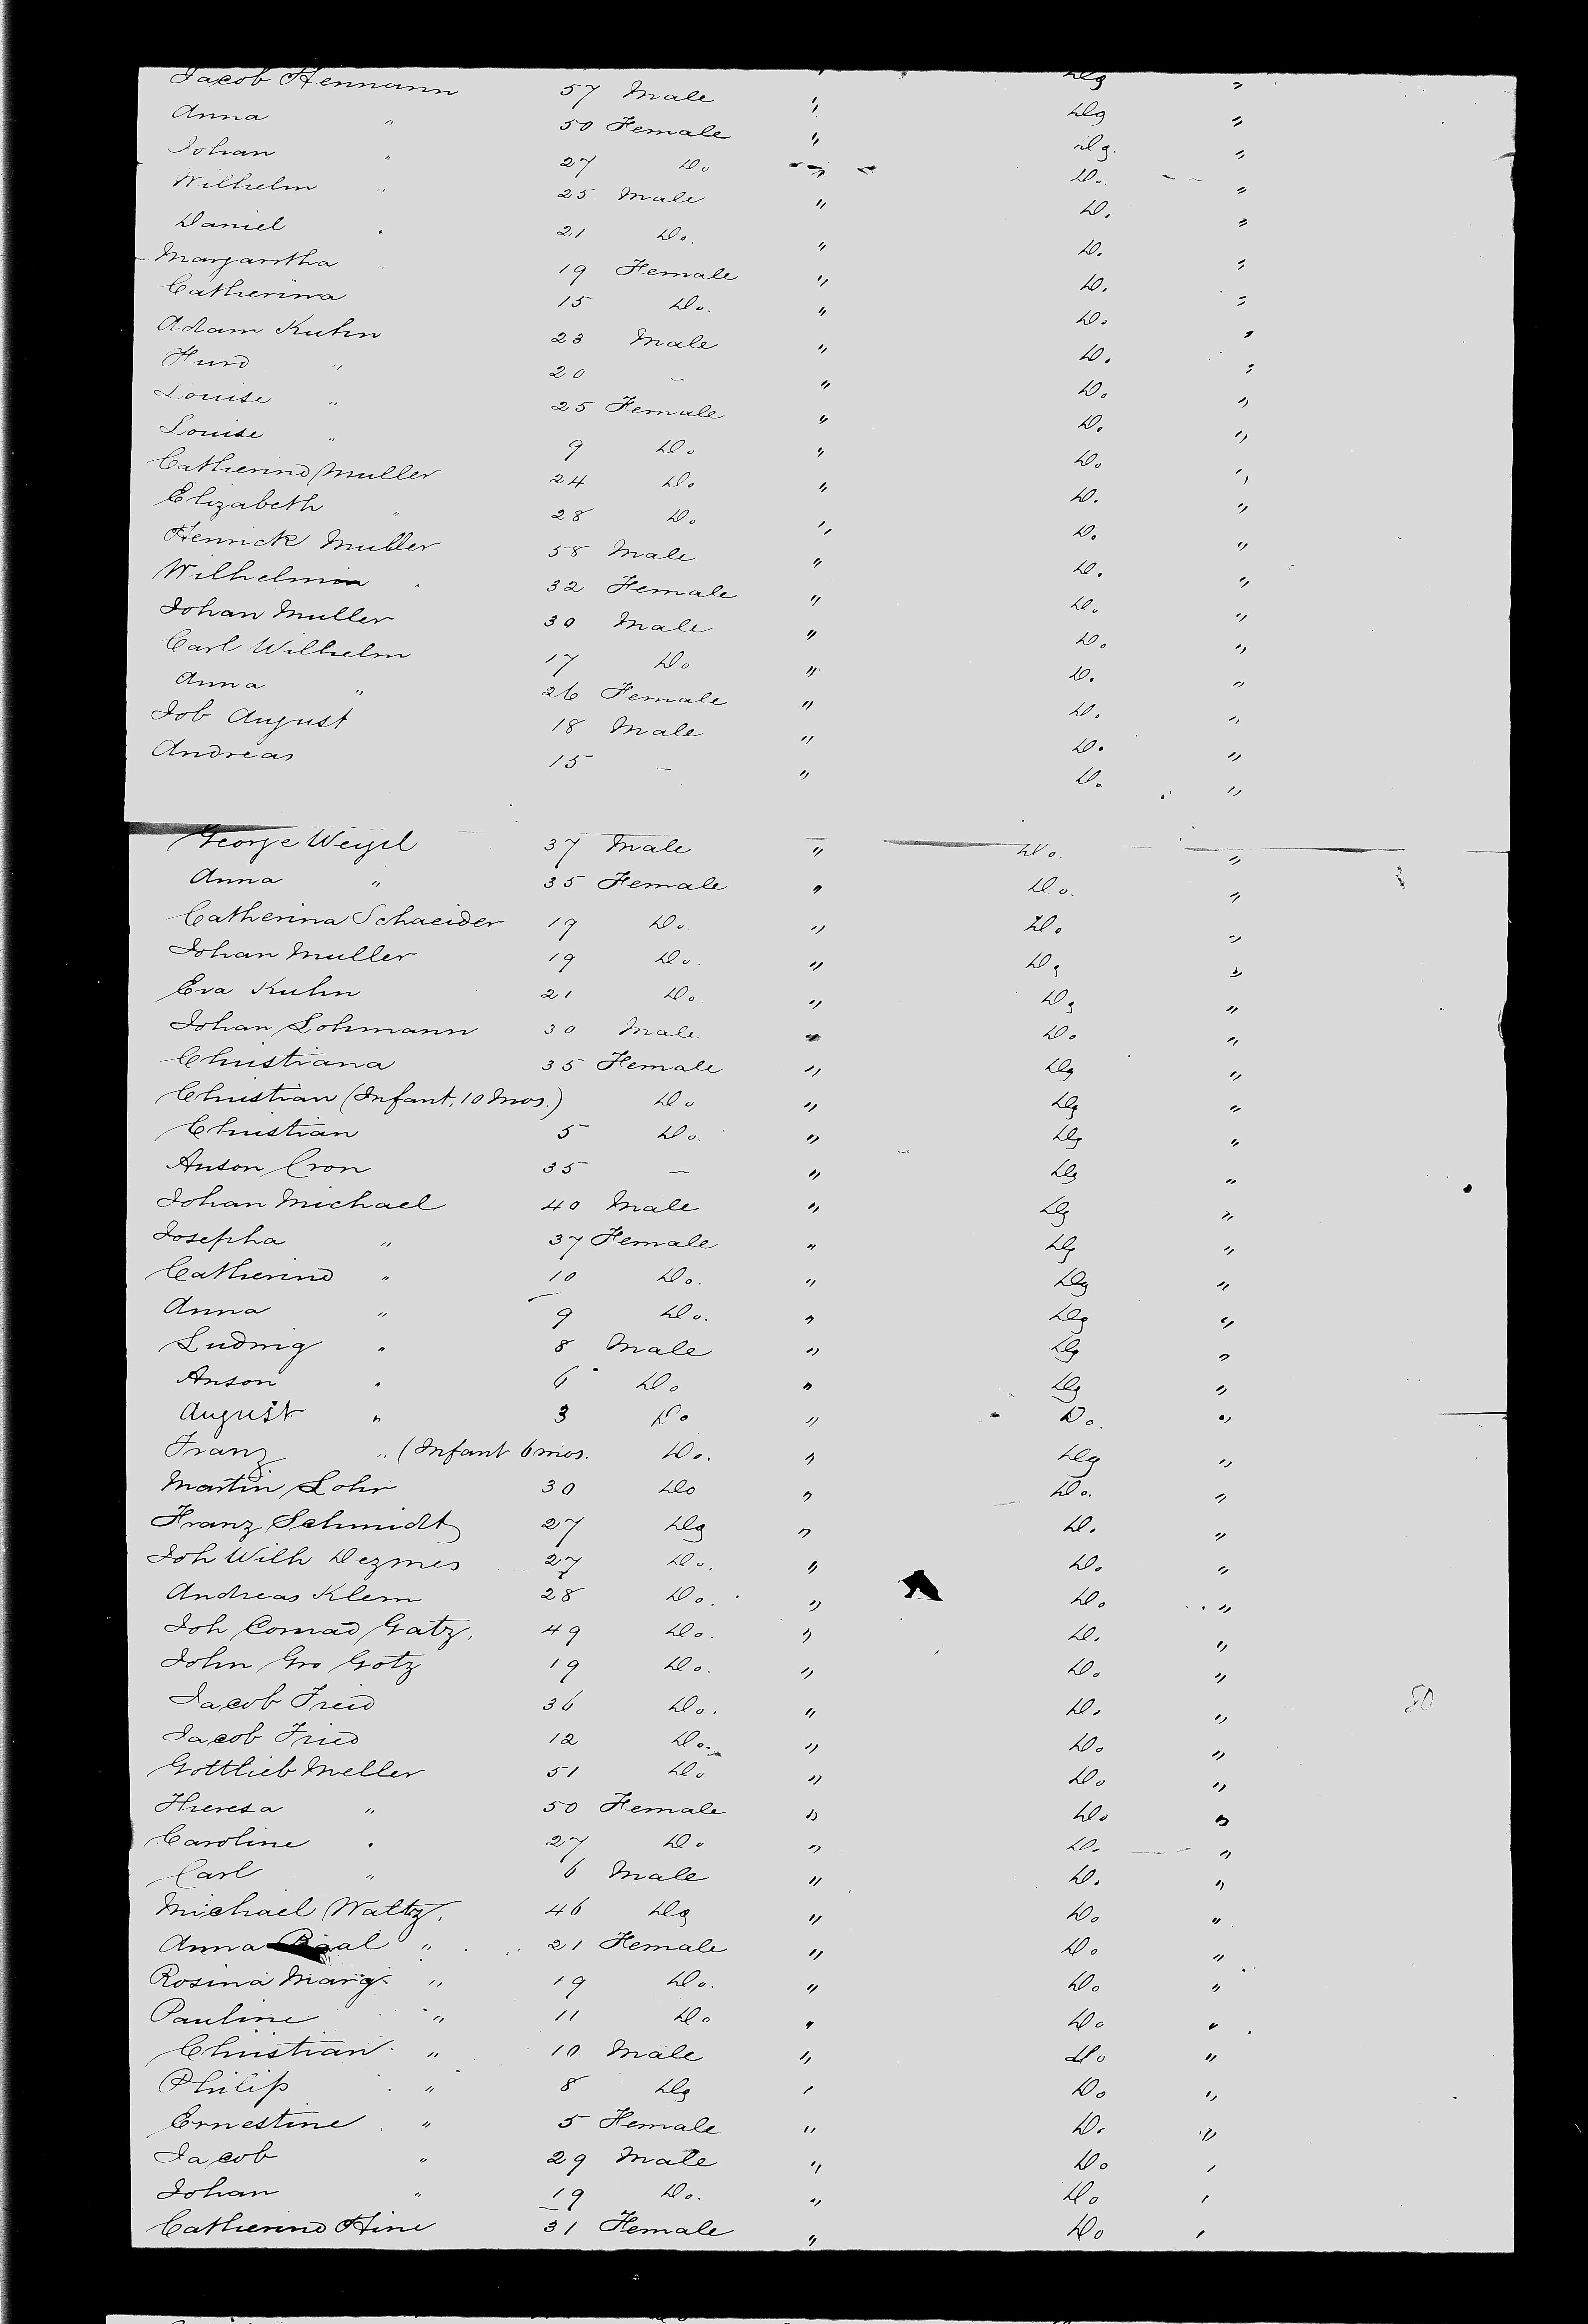 Jacob Hennann 57 Male " Do "
Anna " 50 Female " Do "
Johan " 27 Do " Do "
Wilhelm " 25 Male " Do. "
Daniel " 21 Do. " Do. "
Margaretha " 19 Female " Do. "
Catherina 15 Do. " Do. "
Adam Kuhn 23 Male " Do. "
Hund " 20 — " Do. "
Louise " 25 Female " Do. "
Louise " 9 Do. " Do. "
Catherina Muller 24 Do. " Do. "
Elizabeth " 28 Do. " Do. "
Henrick Muller 58 Male " Do. "
Wilhelmin " 32 Female " Do. "
Johan Muller 30 Male " Do. "
Carl Wilhelm 17 Do " Do. "
Anna " 26 Female " Do. "
Job August 18 Male " Do. "
Andreas 15 — " Do. "
George Weyel 37 Male " Do. "
Anna " 35 Female " Do. "
Catherina Schneider 19 Do. " Do "
Johan Muller 19 Do. " Do "
Eva Kuhn 21 Do. " Do "
Johan Lohmann 30 Male " Do "
Christiana 35 Female " Do "
Christian (Infant, 10 Mos.) Do " Do "
Christian 5 Do. " Do "
Anson Cron 35 — " Do "
Johan Michael 40 Male " Do "
Josepha " 37 Female " Do "
Catherina " 10 Do. " Do "
Anna " 9 Do. " Do "
Ludwig " 8 Male " Do "
Anson " 6 Do " Do "
August " 3 Do " Do. "
Franz " (Infant 6 mos. Do. " Do "
Martin Lohr 30 Do " Do. "
Franz Schmidt 27 Do " Do. "
Joh Wilh Dezmes 27 Do. " Do. "
Andreas Klem 28 Do. " Do. "
Joh Conrad Gatz. 49 Do. " Do. "
John Gro Gotz 19 Do. " Do. "
Jacob Freid 36 Do. " Do. " 50
Jacob Fried 12 Do. " Do. "
Gottlieb Meller 51 Do " Do "
Theresa " 50 Female " Do "
Caroline " 27 Do " Do. "
Carl " 6 Male " Do. "
Michael Waltz. 46 Do " Do "
Anna " 21 Female " Do "
Rosina Marg. " 19 Do. " Do "
Pauline " 11 Do " Do "
Christian " 10 Male " Do "
Philip " 8 Do " Do "
Ernestine " 5 Female " Do. "
Jacob " 29 Male " Do "
Johan " 19 Do. " Do "
Catherina Hine 31 Female " Do "